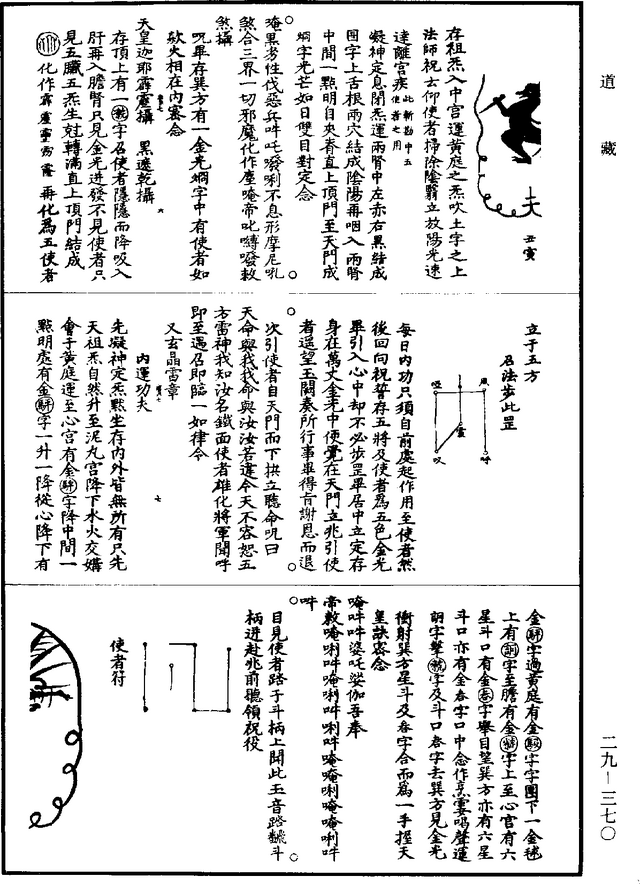 道藏
丑寅
存祖炁入中宮運黄庭之炁吹土字之上
法師祝云仰使者掃除陰翳立放陽光速
達離宮疾此斬勘中五使者之用
凝神定息閉炁運兩腎中左赤右黑結成
圈字上舌根兩穴結成陰陽再咽入兩腎
中間一點明自夾脊直上頂門至天門成
焵字光芒如日雙目對定念
唵黑劣性伐惡兵吽吒癹唎不息形摩尼吼
煞合三界一切邪魔化作塵唵帝叱嚩癹敕
煞攝
呪畢存巽方有一金光焵字中有使者如
欻火相在内密念
天皇迦耶霹靂攝　黑遮乾攝
六
存頂上有一字召使者隱隱而降吸入
肝再入膽腎只見金光迸發不見使者只
見五臟五炁生㚘轉滿直上頂門結成
化作　再化為五使者
立于五方
召法步此罡
每日内功只須自前處起作用至使者然
後回向祝誓存五將及使者為五色金光
畢引入心中却不必步罡畢居中立定存
身在萬丈金光中便覺在天門立兆引使
者遥望玉闕奏所行事畢得旨謝恩而退
次引使者自天門而下拱立聽命呪曰
天命與我我命與汝汝若違令天不容恕五
方雷神我知汝名鐵面使者雄化將軍聞呼
即至遇召即臨一如律令
又玄晶雷章
内運功夫
七
先凝神定炁默坐存内外皆無所有只先
天祖炁自然升至泥丸宮降下水火交媾
會于黄庭運至心宮有金字降中間一
點明處有金字一升一降從心降下有
金字過黄庭有金字字圈下一金毬
上有字至膽有金字上至心宮有六
星斗口有金字舉目望巽方亦有六星
斗口亦有金吞字口中念作烹霎唱聲運
字擊字及斗口吞字去巽方見金光
衝射巽方星斗及吞字合而為一手握天
皇訣密念
唵吽吽婆吒娑伽吾奉
帝敕唵唎吽唵唎吽唎吽吽唵唵唎唵唵唎吽
吽
目見使者踏于斗柄上聞此玉音踏飜斗
柄迸赴兆前聽領祝役
使者符
二九—三七〇